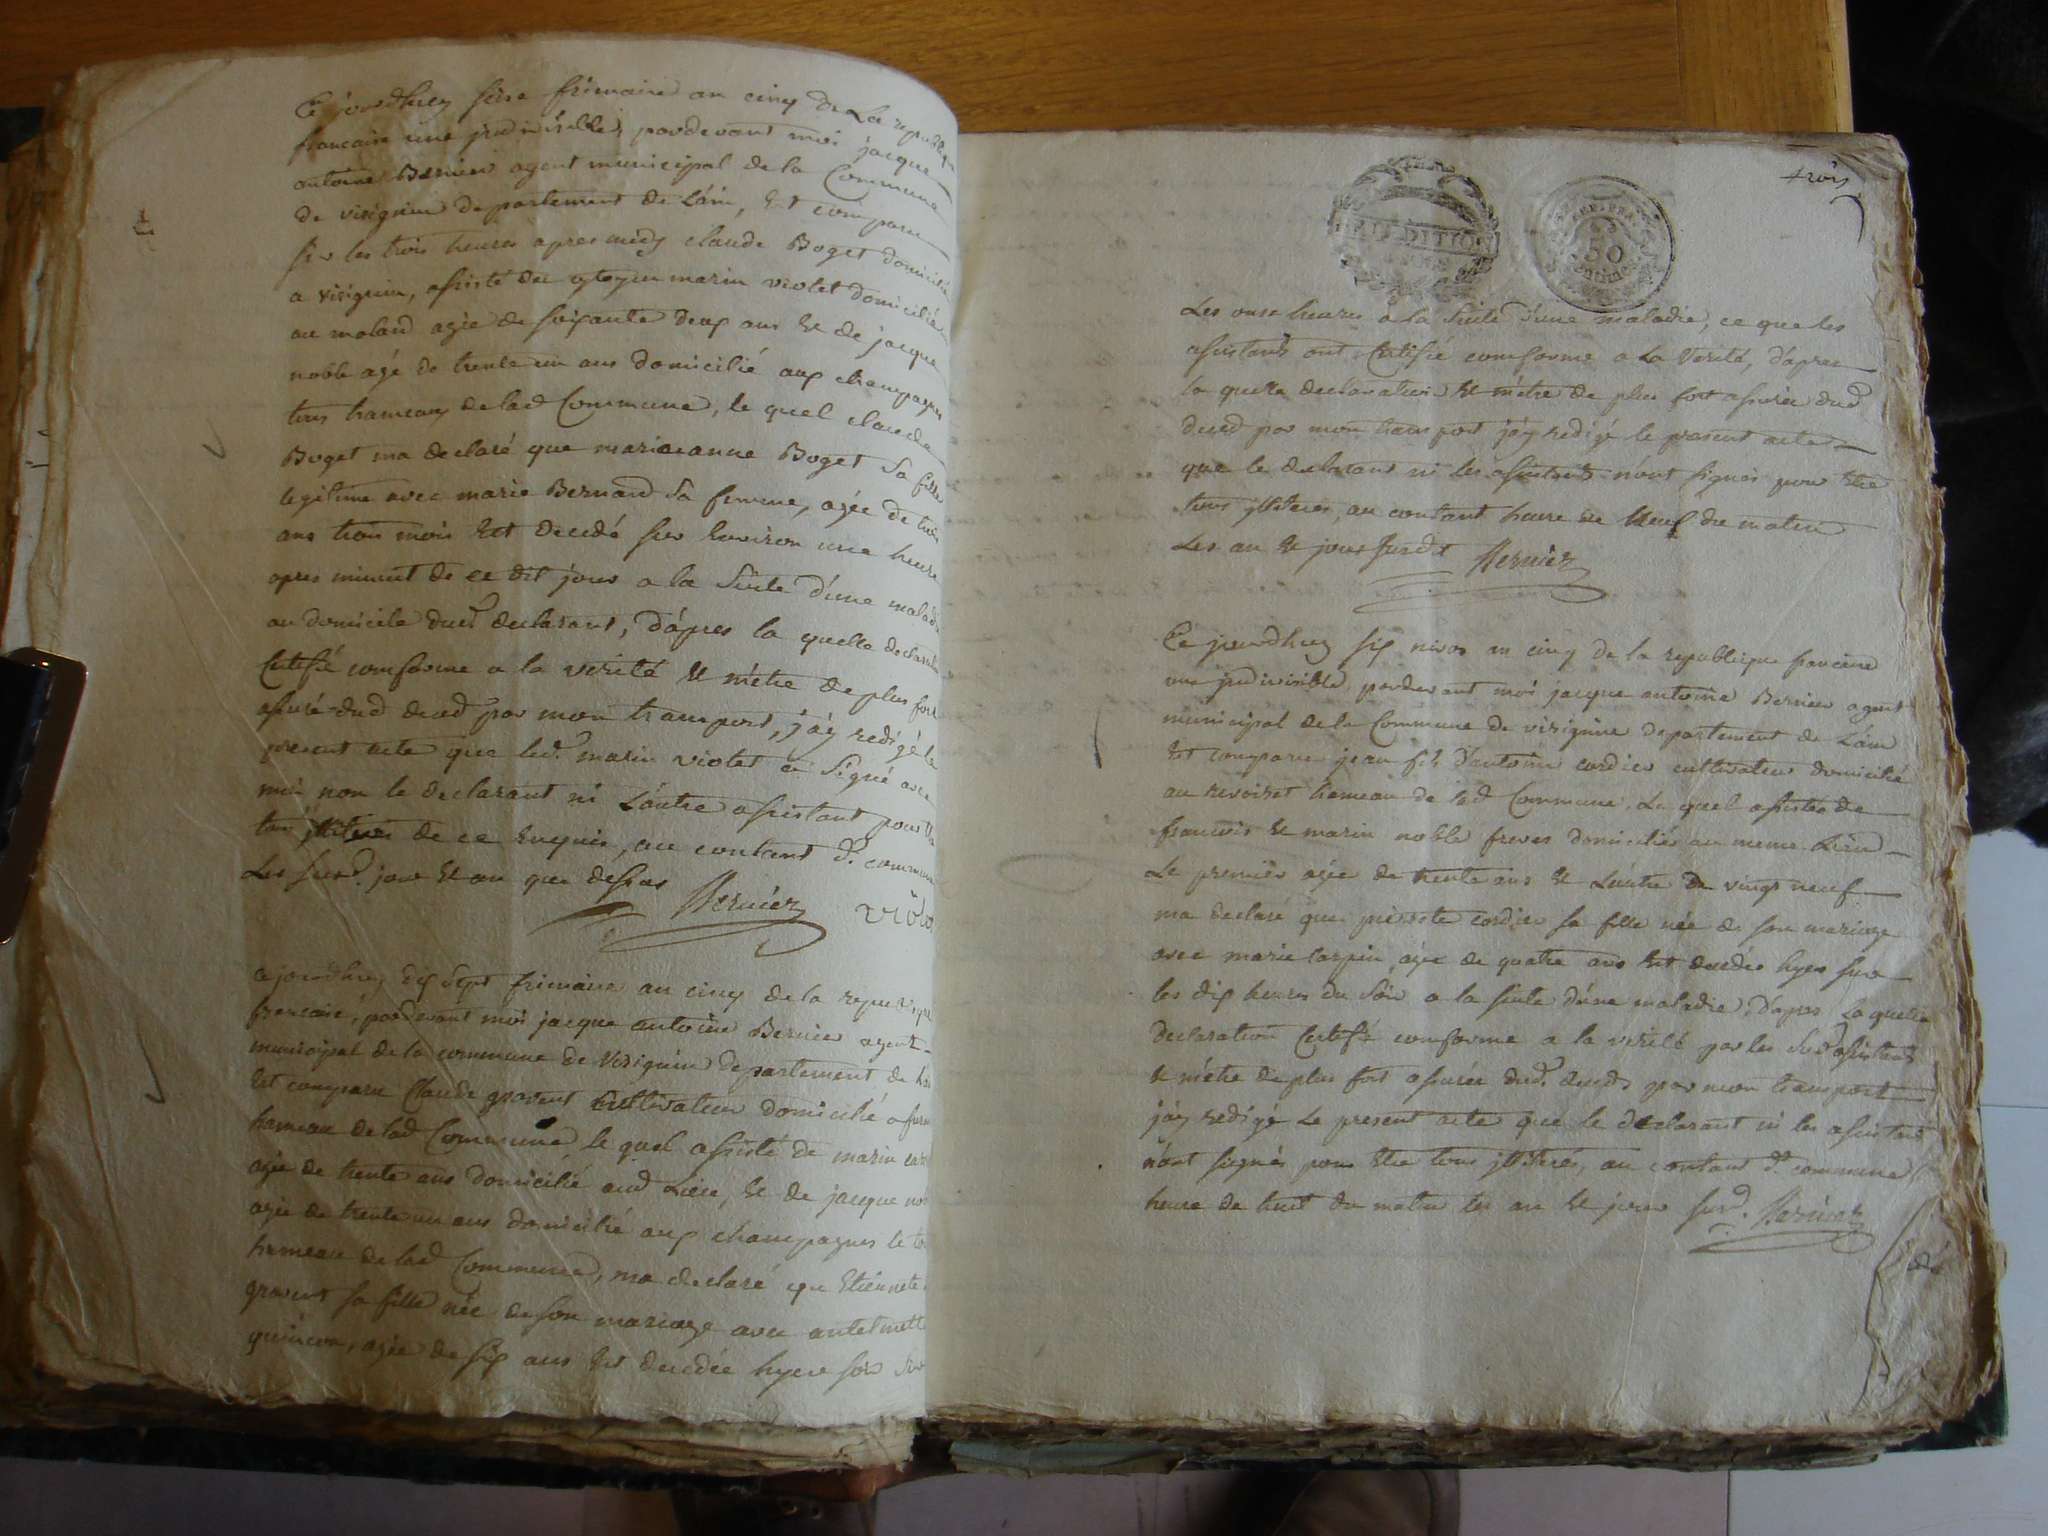 Ce jourdhuy seise frimaire an cinq de La republique
francaise une jndivisible, pardevant moi jacque
antoine Bernier agent municipal de la Commune
de virignin departement de L'ain, Est comparu
sur les trois heures apres midy claude Boget domicilié
a virignin, assisté du cytoyen marin violet domicilié
au molard agée de soixante deux ans Et de jacque
noble agé de trente un ans domicilié aux champagnes
tous hameaux de lad Commune, le quel claude
Boget ma declaré que marieanne Boget sa fille
legitime avec marie Bernard sa femme, agée de trois
ans trois mois Est decedé sur Environ une heure
apres minuit de ce dit jour a la suite d'une maladie
au domicile dud declarant, D'apres la quelle declaration
Certifié comforme a la verité Et m'etre de plus fort
assuré dud deced par mon transport, j'ay redigé le
present acte que led. marin violet a signé avec
moi non le declarant ni L'autre assistant pour Etre
tous jlliterés de ce Enquis, au contant d. commune
Les susd. jour Et an que dessus Bernier violet
cejourdhuy dix sept frimaire an cinq de la republique
francaise, pardevant moi jacque antoine Bernier agent
municipal de la commune de Virignin departement de L'ain
Est comparu Claude gravent Cultivateur domicilié a
hameau de lad Commune, le quel assisté de marin
agée de trente ans domicilié aud Lieu, Et de jacque noble
agée de trente un ans domicilié aux champagnes le tout
hameau de lad Commune, ma declaré que Etiennete
gravent sa fille née de son mariage avec antelmette
quincon, agée de six ans Est decedée hyer soir sur
trois
50
Les onse heures a la suite d'une maladie, ce que les
assistants ont Certifié comforme a La Verité, d'apres
la quelle declaration Et m'etre de plus fort assurée dud
deced par mon transport j'ay redigé le present acte
que le declarant ni les assistants n'ont signés pour Etre
tous jlliterés, au contant heure de Neuf du matin
Les an Et jour susdt Bernier
Ce jourdhuy six nivos an cinq de la republique francaise
une jndivisible, pardevant moi jacque antoine Bernier agent
municipal de la Commune de virignin departement de L'ain
Est comparu jean fils d'antoine cordier cultivateur domicilié
au revoiret hameau de lad Commune, Le quel assistée de
francois Et marin noble freres domiciliés au meme Lieu
Le premier agée de trente ans Et L'autre de vingt neuf
ma declaré que pierrete cordier sa fille née de son mariage
avec marie carpin, agée de quatre ans Est decedée hyer sur
les dix heures du soir a la suite d'une maladie, d'apres La quelle
declaration Certifié comforme a la verité par les susd assistants
Et m'etre de plus fort assurée dud. deceds par mon transport
j'ay redigé Le present acte que le declarant ni les assistants
n'ont signés pour Etre tous jlliterés, au contant d. commune
heure de huit du matin les an Et jour susd. Bernier